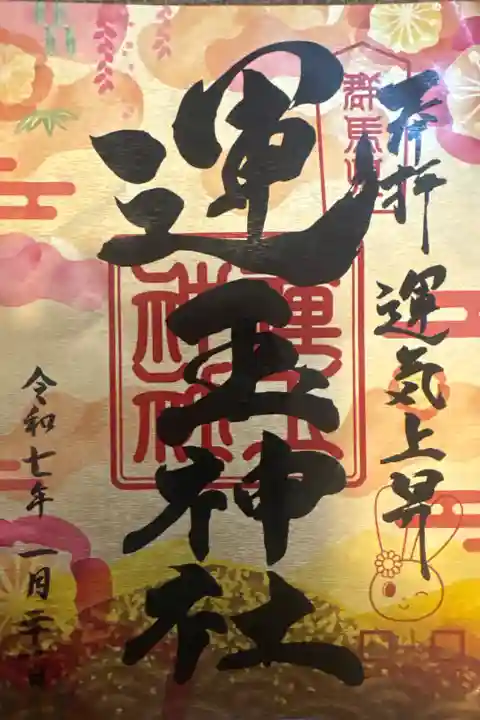 奉拝 運気上昇
群馬
運玉神社
令和七年 一月二十日